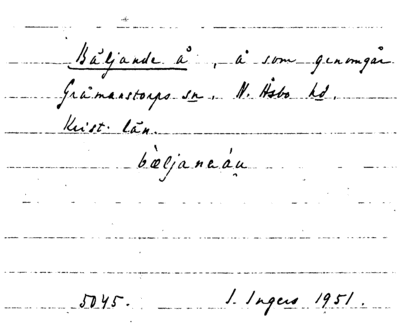 Bäljande å, å som genomgår
Gråmanstorps sn, N. Åsbo hd,
Krist. län.
bæljaneáu̯
5045. I. Ingers 1951.